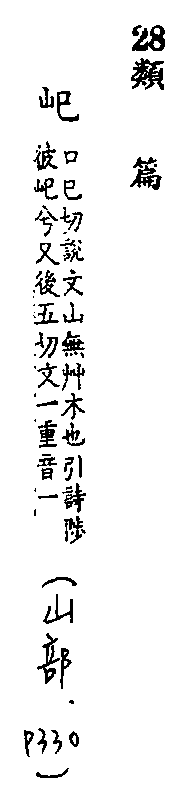 28類篇
屺
口巳切說文山無艸木也引詩陟
彼屺兮又後五切文一重音一
(山部.P330)